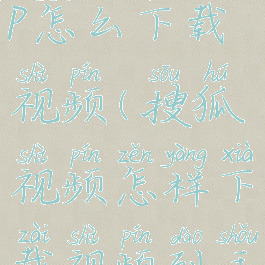 P怎么下载
shì pín sōu hú
视频(搜狐
shì pín zěn yàng xià
视频怎样下
zài shì pín dào shǒu
载视频到手